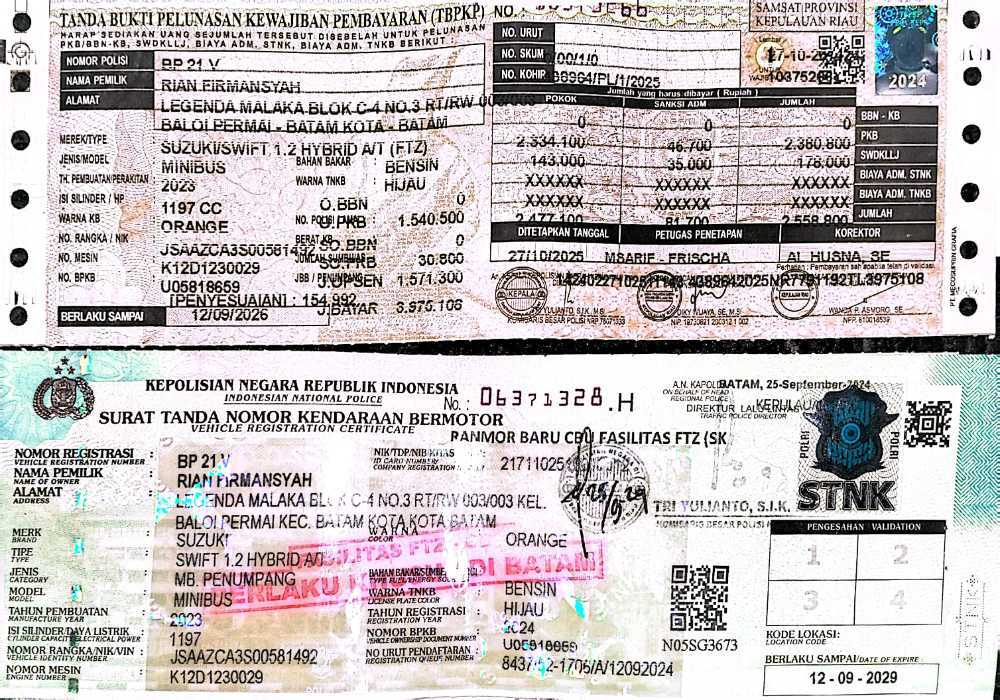 TANDA BUKTI PELUNASAN KEWAJIBAN PEMBAYARAN (TBPKP)
HARAP SEDIAKAN UANG SEJUMLAH TERSEBUT DISEBELAH UNTUK PELUNASAN
PKB/BBN-KB, SWDKLLJ, BIAYA ADM. STNK, BIAYA ADM. TNKB BERIKUT :
NO.
SAMSAT PROVINSI
KEPULAUAN RIAU
2024
NO. URUT
NO. SKUM
NO. KOHIP
Jumlah yang harus dibayar ( Rupiah )
POKOK SANKSI ADM JUMLAH
0 0 0 BBN - KB
2.334.100 46.700 2.380.800 PKB
143.000 35.000 178.000 SWDKLLJ
XXXXXX XXXXXX XXXXXX BIAYA ADM. STNK
XXXXXX XXXXXX XXXXXX BIAYA ADM. TNKB
2.477.100 81.700 2.558.800 JUMLAH
DITETAPKAN TANGGAL PETUGAS PENETAPAN KOREKTOR
27/10/2025 MSARIF - FRISCHA AL HUSNA, SE
NOMOR POLISI BP 21 V
NAMA PEMILIK RIAN FIRMANSYAH
ALAMAT LEGENDA MALAKA BLOK C-4 NO.3 RT/RW 003/003
BALOI PERMAI - BATAM KOTA - BATAM
MEREK/TIPE : SUZUKI/SWIFT 1.2 HYBRID A/T (FTZ)
JENIS/MODEL : MINIBUS BAHAN BAKAR : BENSIN
TH. PEMBUATAN/PERAKITAN : 2023 WARNA TNKB : HIJAU
ISI SILINDER / HP : 1197 CC O.BBN 0
WARNA KB : ORANGE O.PKB 1.540.500
NO. RANGKA / NIK : JSAAZCA3S00581492 SO.BBN 0
NO. MESIN : K12D1230029 30.800
NO. BPKB : U05818659 JBB / PENUMPANG O.OPSEN 1.571.300
[PENYESUAIAN] : 154.992 J.BAYAR
BERLAKU SAMPAI 12/09/2026
KEPOLISIAN NEGARA REPUBLIK INDONESIA
INDONESIAN NATIONAL POLICE
No. : 06371328.H
SURAT TANDA NOMOR KENDARAAN BERMOTOR
VEHICLE REGISTRATION CERTIFICATE
RANMOR BARU CBU FASILITAS FTZ (SK
BATAM, 25-September-2024
ON BEHALF OF HEAD
REGIONAL POLICE
TRAFFIC POLICE DIRECTOR
TRI YULIANTO, S.I.K.
POLRI
POLRI
STNK
NOMOR REGISTRASI : BP 21 V
VEHICLE REGISTRATION NUMBER
NAMA PEMILIK : RIAN FIRMANSYAH
NAME OF OWNER
ALAMAT : LEGENDA MALAKA BLOK C-4 NO.3 RT/RW 003/003 KEL.
ADDRESS
BALOI PERMAI KEC. BATAM KOTA KOTA BATAM
MERK : SUZUKI
BRAND
TIPE : SWIFT 1.2 HYBRID A/T
TYPE
JENIS : MB. PENUMPANG
CATEGORY
MODEL : MINIBUS
MODEL
TAHUN PEMBUATAN : 2023
MANUFACTURE YEAR
ISI SILINDER/DAYA LISTRIK : 1197
CYLINDER CAPACITY/ELECTRICAL POWER
NOMOR RANGKA/NIK/VIN : JSAAZCA3S00581492
VEHICLE IDENTITY NUMBER
NOMOR MESIN : K12D1230029
ENGINE NUMBER
NIK/TDP/NIB/KITAS :
ID CARD NUMBER/
COMPANY REGISTRATION
WARNA : ORANGE
COLOR
BAHAN BAKAR/SUMBER : BENSIN
TYPE FUEL/ENERGY
WARNA TNKB : HIJAU
LICENSE PLATE COLOR
TAHUN REGISTRASI : 2024
REGISTRATION YEAR
NOMOR BPKB :
VEHICLE OWNERSHIP DOCUMENT NUMBER
NO URUT PENDAFTARAN :
REGISTRATION QUEUE NUMBER
N05SG3673
PENGESAHAN VALIDATION
1 2
3 4
KODE LOKASI:
LOCATION CODE
BERLAKU SAMPAI/DATE OF EXPIRE
12 - 09 - 2029